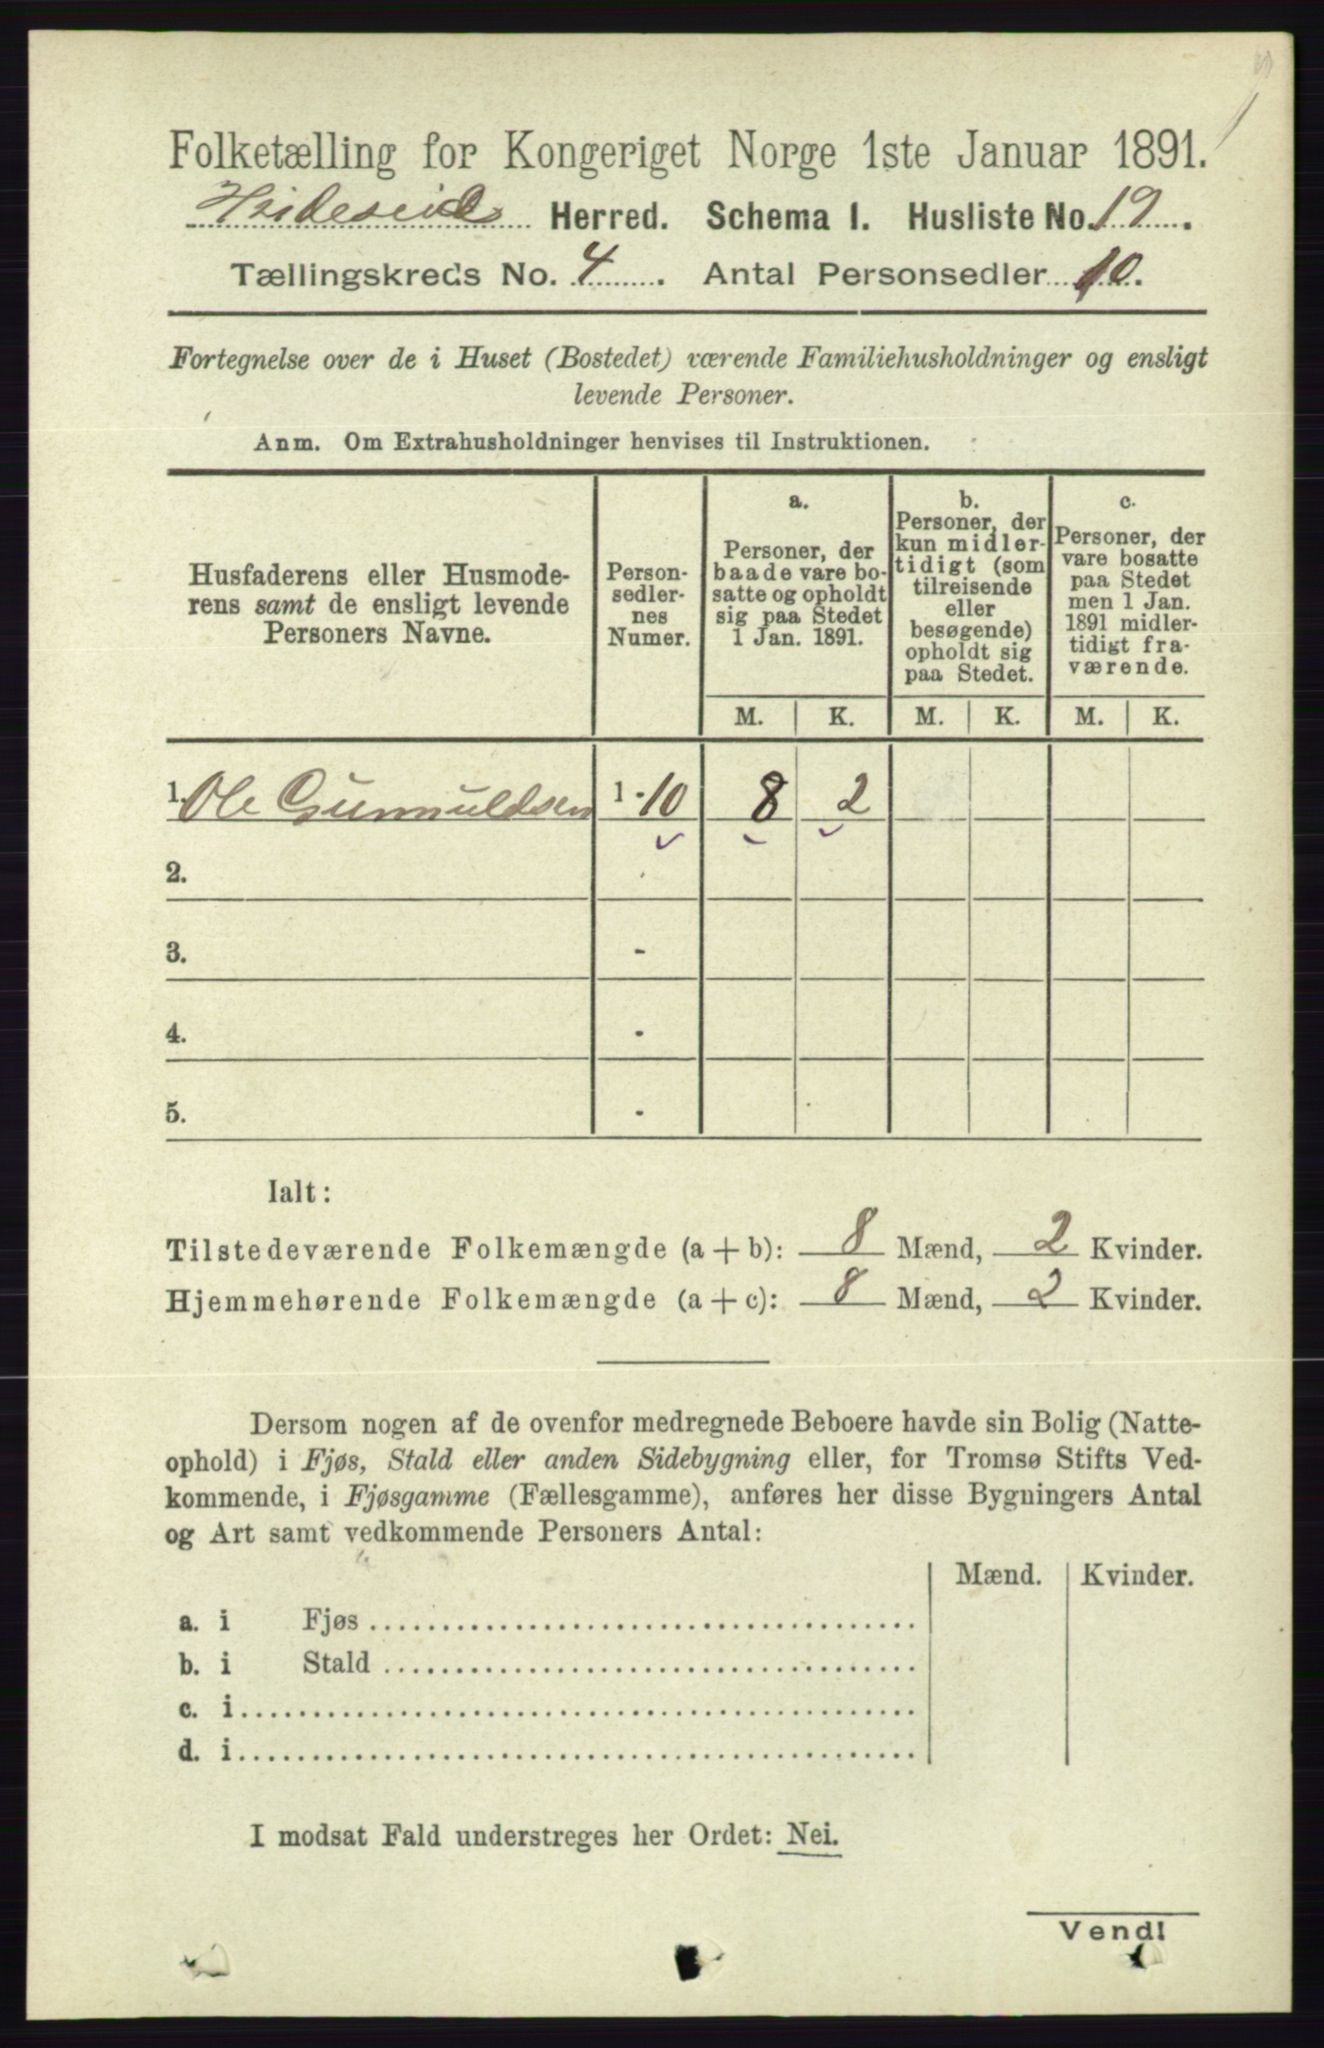 Folketælling for Kongeriget Norge 1ste Januar 1891.
Hvideseid Herred. Schema 1. Husliste No. 19.
Tællingskreds No. 4. Antal Personsedler 10.
Fortegnelse over de i Huset (Bostedet) værende Familiehusholdninger og ensligt
levende Personer.
Anm. Om Extrahusholdninger henvises til Instruktionen.
Husfaderens eller Husmode-
rens samt de ensligt levende
Personers Navne.
Person-
sedler-
nes
Numer.
a.
Personer, der
baade vare bo-
satte og opholdt
sig paa Stedet
1 Jan. 1891.
b.
Personer, der
kun midler-
tidigt (som
tilreisende
eller
besøgende)
opholdt sig
paa Stedet.
c.
Personer, der
vare bosatte
paa Stedet
men 1 Jan.
1891 midler-
tidigt fra-
værende.
M. K. M. K. M. K.
1. Ole Gunnuldsen 1-10 8 2
2.
3. -
4. -
5. -
Ialt:
Tilstedeværende Folkemængde (a + b): 8 Mænd, 2 Kvinder.
Hjemmehørende Folkemængde (a + c): 8 Mænd, 2 Kvinder.
Dersom nogen af de ovenfor medregnede Beboere havde sin Bolig (Natte-
ophold) i Fjøs, Stald eller anden Sidebygning eller, for Tromsø Stifts Ved-
kommende, i Fjøsgamme (Fællesgamme), anføres her disse Bygningers Antal
og Art samt vedkommende Personers Antal:
Mænd. Kvinder.
a. i Fjøs
b. i Stald
c. i
d. i
I modsat Fald understreges her Ordet: Nei.
Vend!